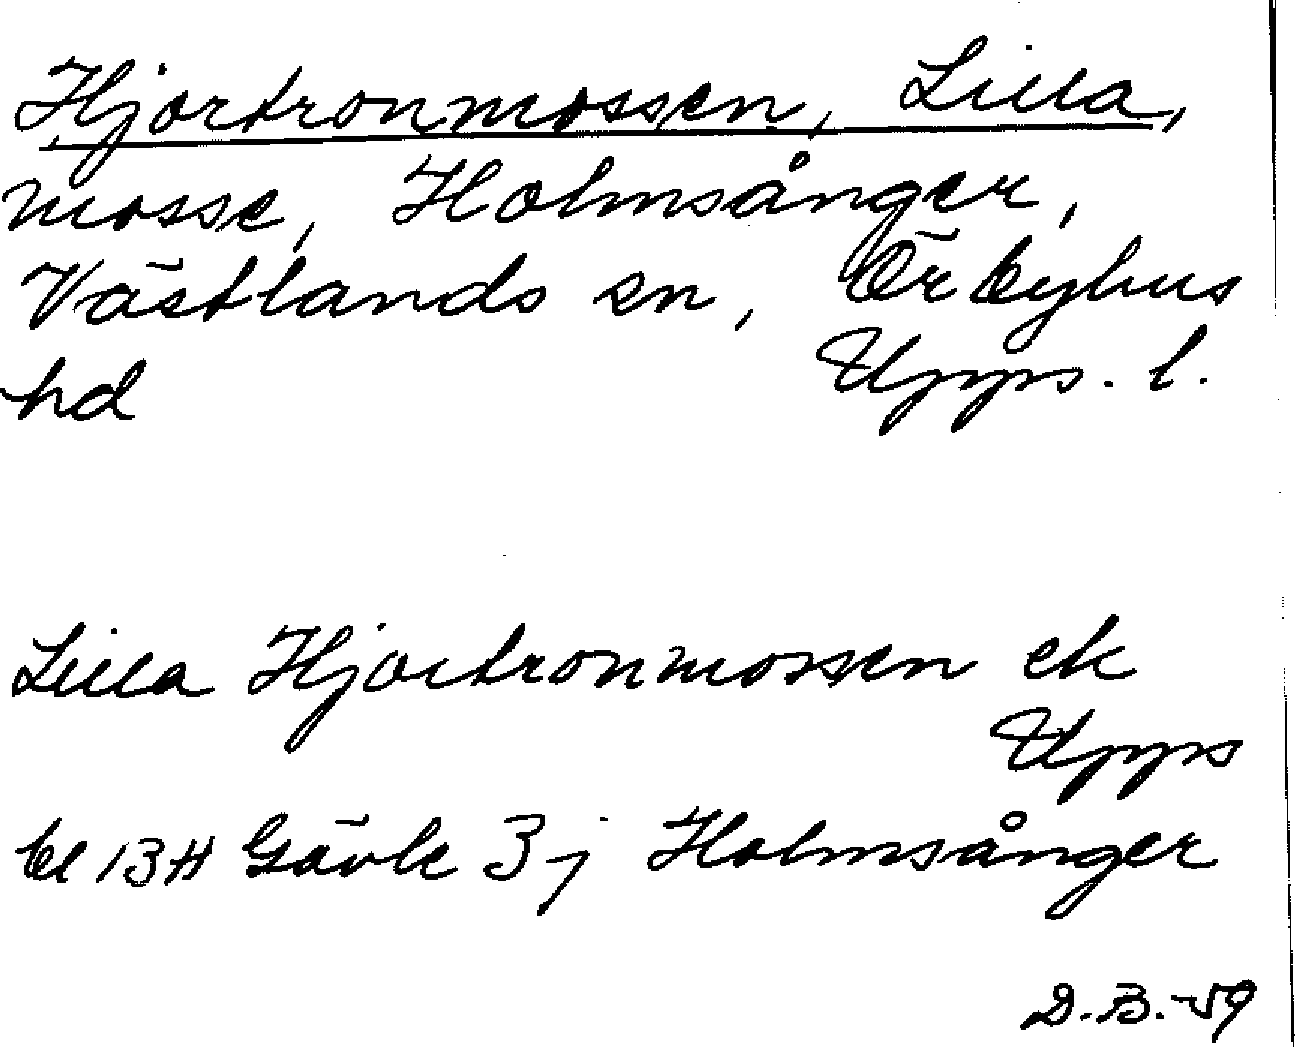 Hjortronmossen, Lilla,
mosse, Holmsånger,
Västlands sn, Örbyhus
hd Upps. l.
Lilla Hjortronmossen ek
Upps
bl 13H Gävle 3j Holmsånger
D.B.-59